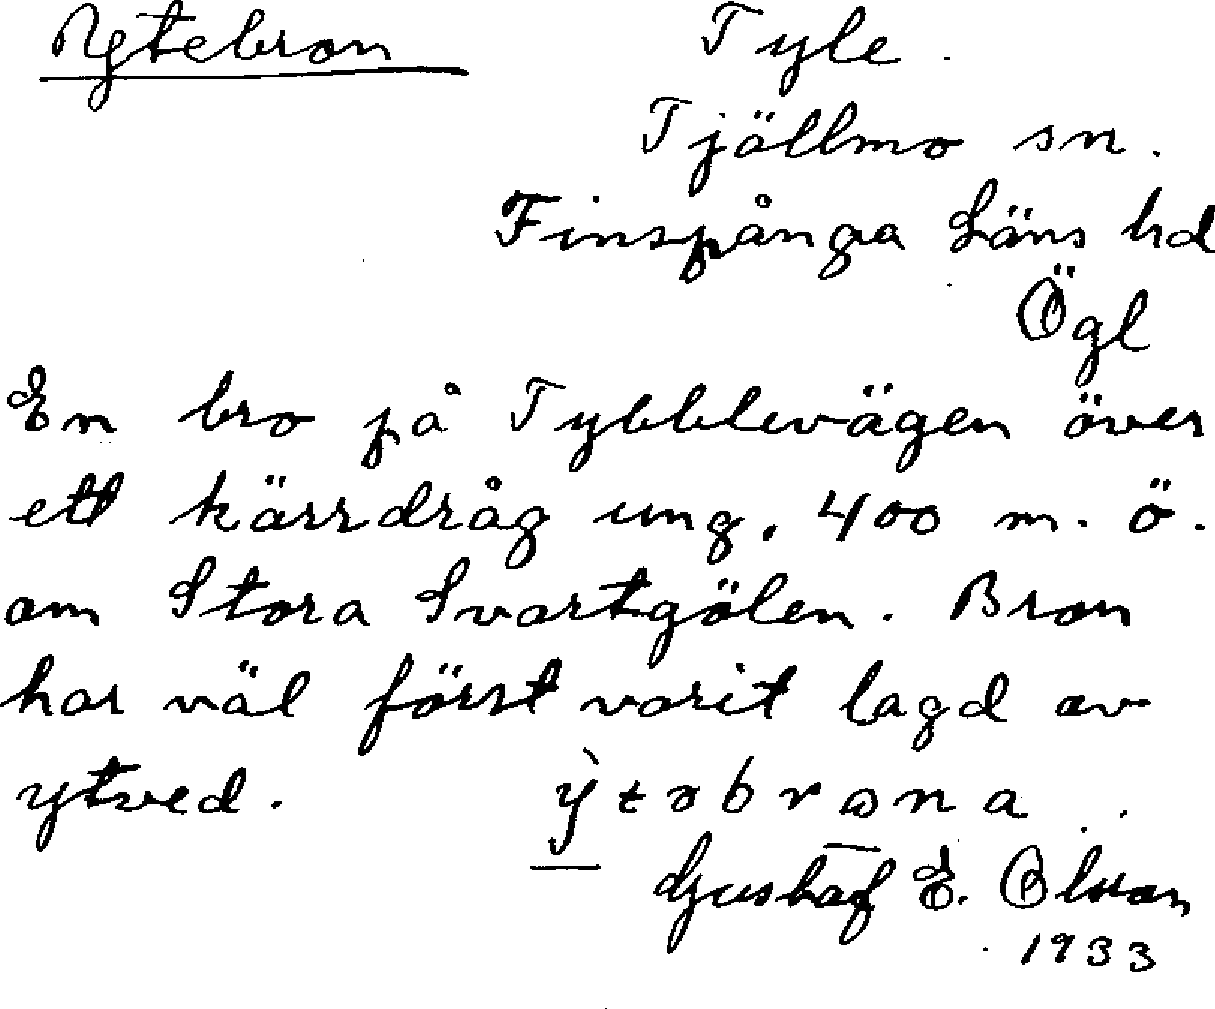 Ytebron
Tyle.
Tjällmo sn.
Finspånga Läns hd
Ögl
En bro på Tybblevägen över
ett kärrdråg ung. 400 m. ö.
om Stora Svartgölen. Bron
har väl först varit lagd av
ytved.
Gustaf E. Olsson
1933